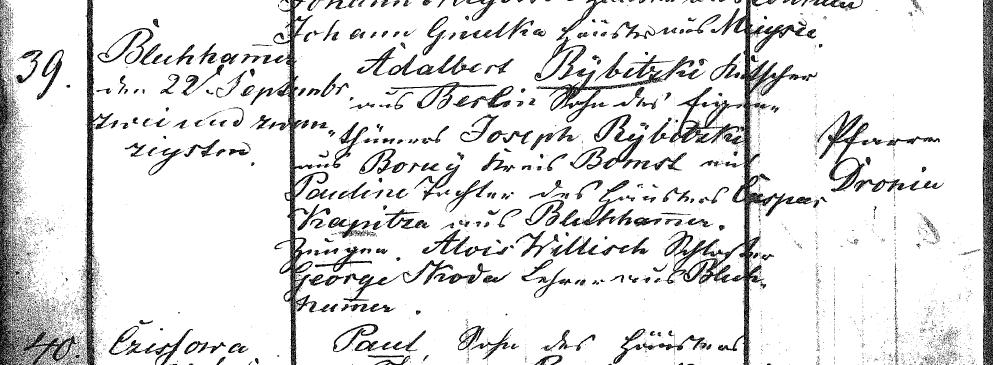 Johann Gmelka Häusler aus Miegsce.
39.
Blechhamer
den 22t. Septembr.
zwei und zwan
zigsten.
Adalbert Rÿbitzki Kutscher
aus Berlin Sohn des Eigen-
thümers Joseph Rÿbitzki
aus Boruÿ Kreis Bomst mit
Pauline Tochter des Häuslers Caspar
Kapitza aus Blechhamer.
Zeugen. Alois Willisch Schlosser
George Skoda Lehrer aus Blech-
hamer.
Pfarrer
Dronia
40.
Czissowa
Paul, Sohn des Häuslers